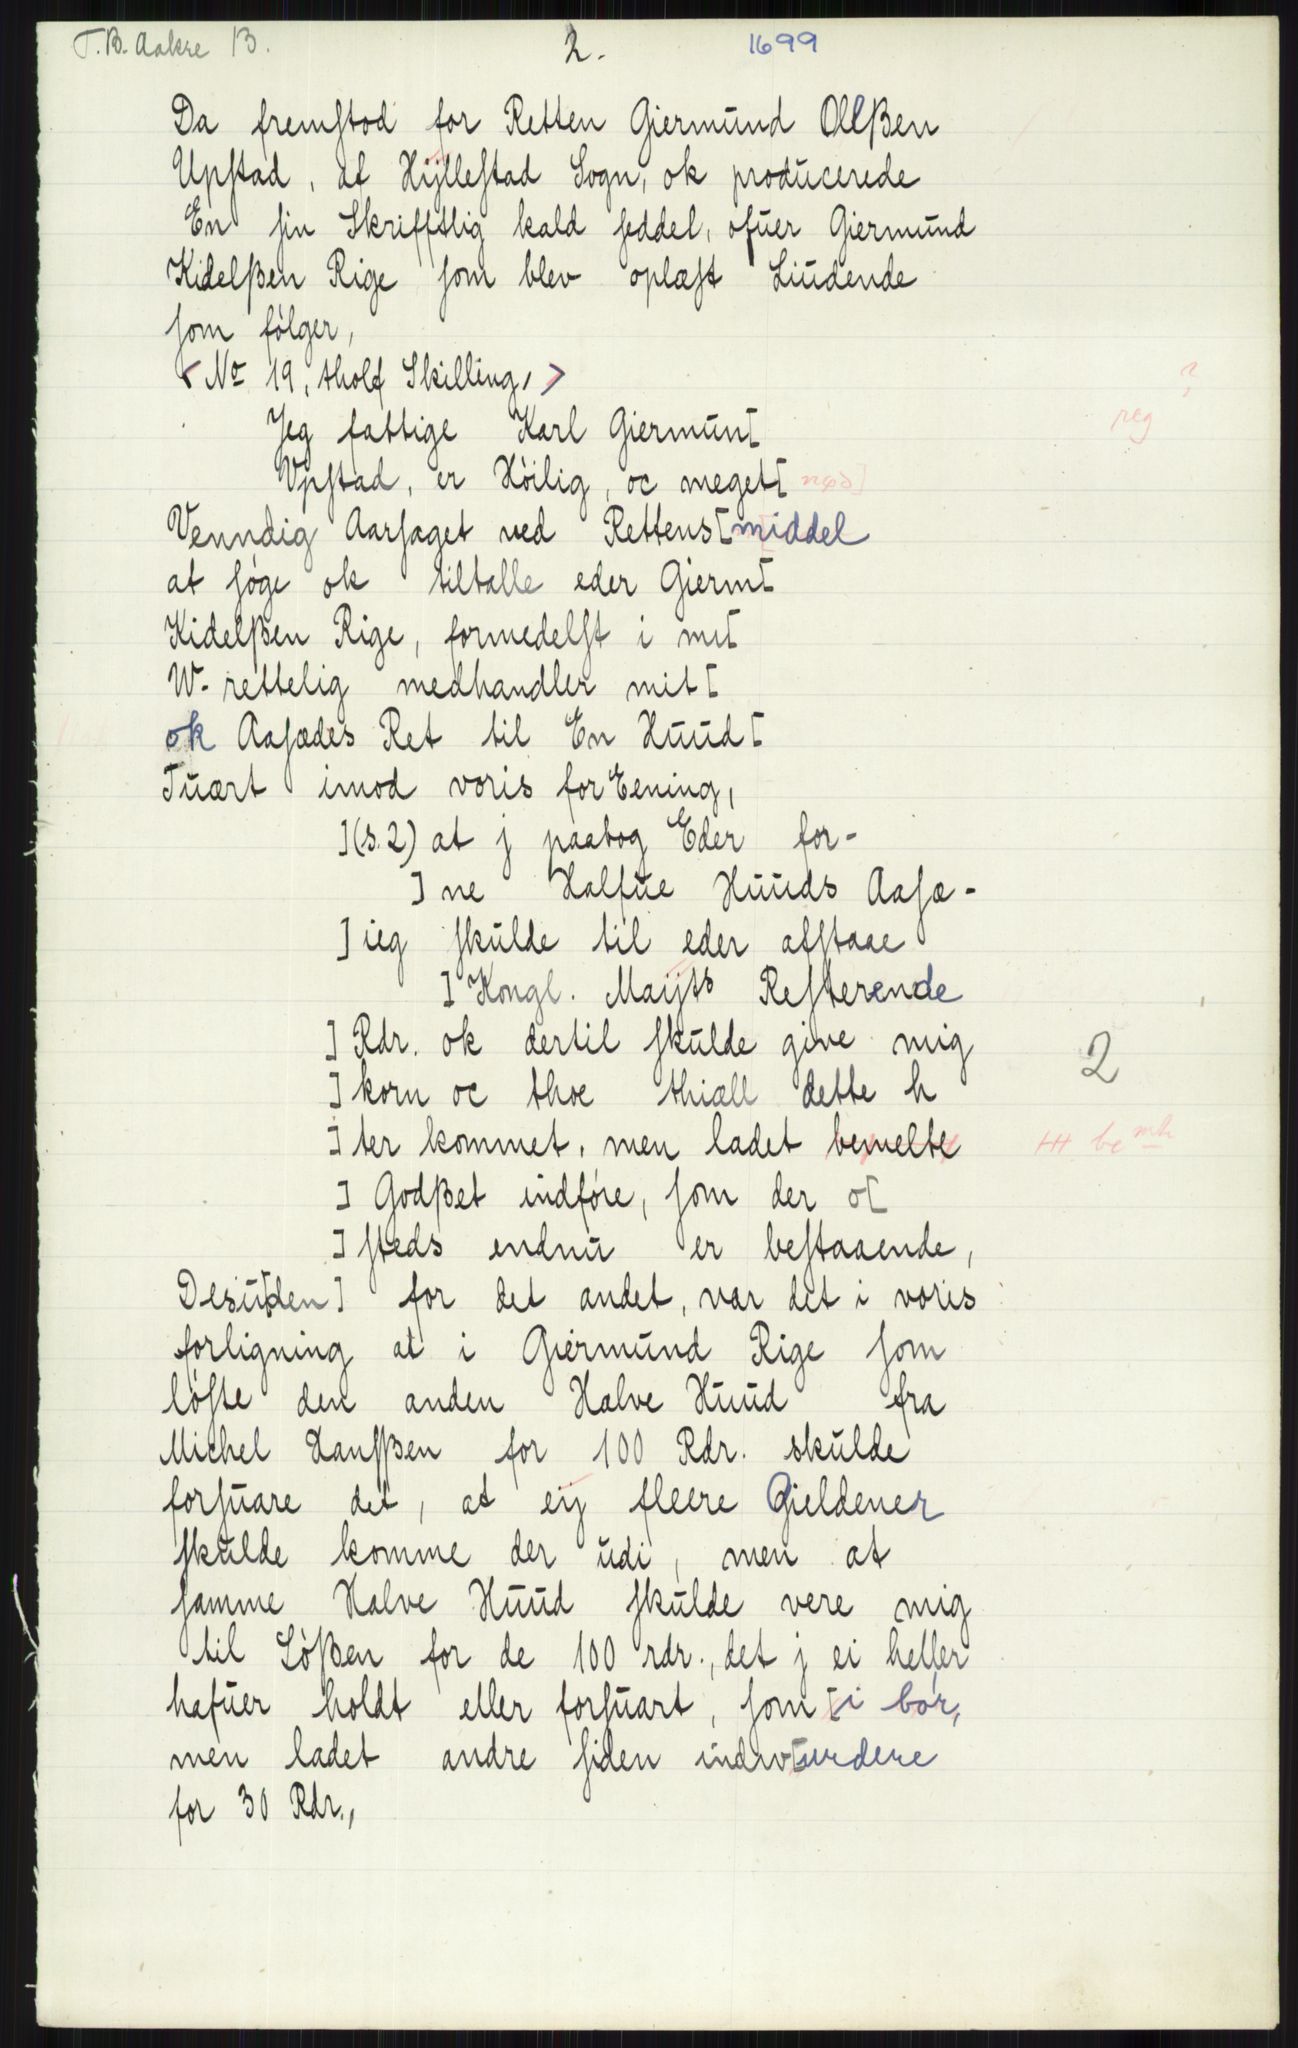 T.B. Aakre B. 2. 1699
Da fremstod for Retten Giermund Olßen
Upstad, af Hÿllestad Sogn, ok producerede
En sin Skrifftlig kald seddel, ofuer Giermund
Kidelßen Rige som blev oplæst Liudende
som følger,
< No 19, tholf Skilling, >
Jeg fattige Karl Giermun[ ?
Vpstad, er Høilig, oc meget[ nød]
Venndig Aarsaget ved Rettens[middel
at søge ok tiltalle eder Gierm[
Kidelßen Rige, formedelst i mi[
W-rettelig medhandler mit[
ok Aasædes Ret til En Huud[
Tuært imod voris forEening,
](s.2) at j paatog Eder for-
] ne Halfue Huuds Aasæ-
] ieg skulde til eder afstaae
] Kongl. Maÿts Resterende
] Rdr. ok dertil skulde give mig 2
] korn oc thoe thiæll dette h
] ter kommet, men ladet bemelte
] Godßet indføre, som der o[
] steds endnu er bestaaende,
Desu[den] for det andet, var det i voris
forligning at i Giermund Rige som
løste den anden Halve Huud fra
Michel Hansßen for 100 Rdr. skulde
forsuare det, at eÿ fleere Gieldener
skulde komme der udi, men at
samme Halve Huud skulde vere mig
til Løßen for de 100 rdr., det j ei heller
hafuer holdt eller forsuart, som [i bør,
men ladet andre siden indv[urdere
for 30 Rdr.,